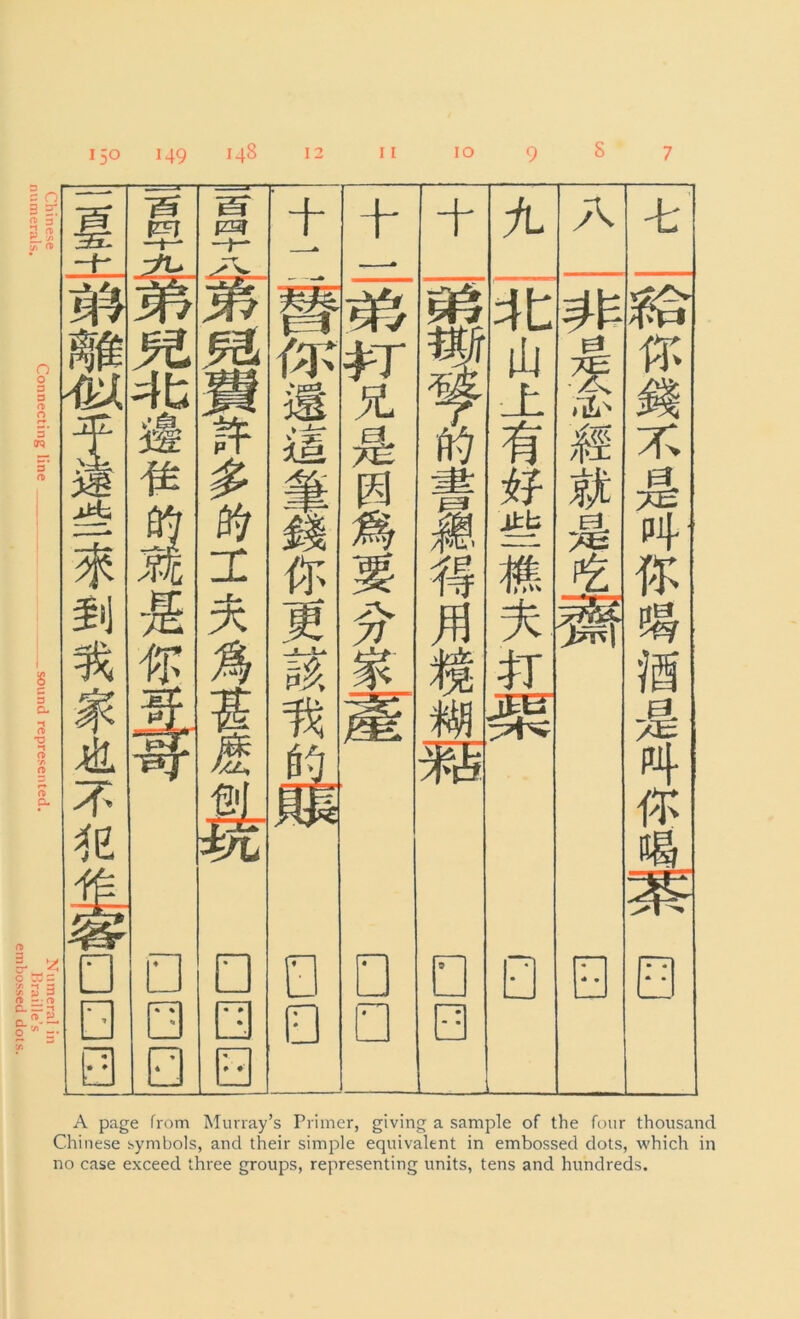 150 149 148 12 11 10 9 8 7
Chinese numerals.
Connecting line
sound represented.
Numeral in Braille's embossed dots.
七 給你錢不是叫你喝酒是叫你喝茶
八 非是念經就是吃齋
九 北山上有好些樵夫打柴
十 弟撕破了的書總得用糨糊粘
十一 弟打兄是因爲要分家產
十二 替你還這筆錢你更該我的賬
一百四十八 弟兒費許多的工夫爲甚麽刨坑
一百四十九 弟兒北邊住的就是你哥哥
一百五十 弟離似乎遠些來到我家也不犯作客
A page from Murray's Primer, giving a sample of the four thousand
Chinese symbols, and their simple equivalent in embossed dots, which in
no case exceed three groups, representing units, tens and hundreds.